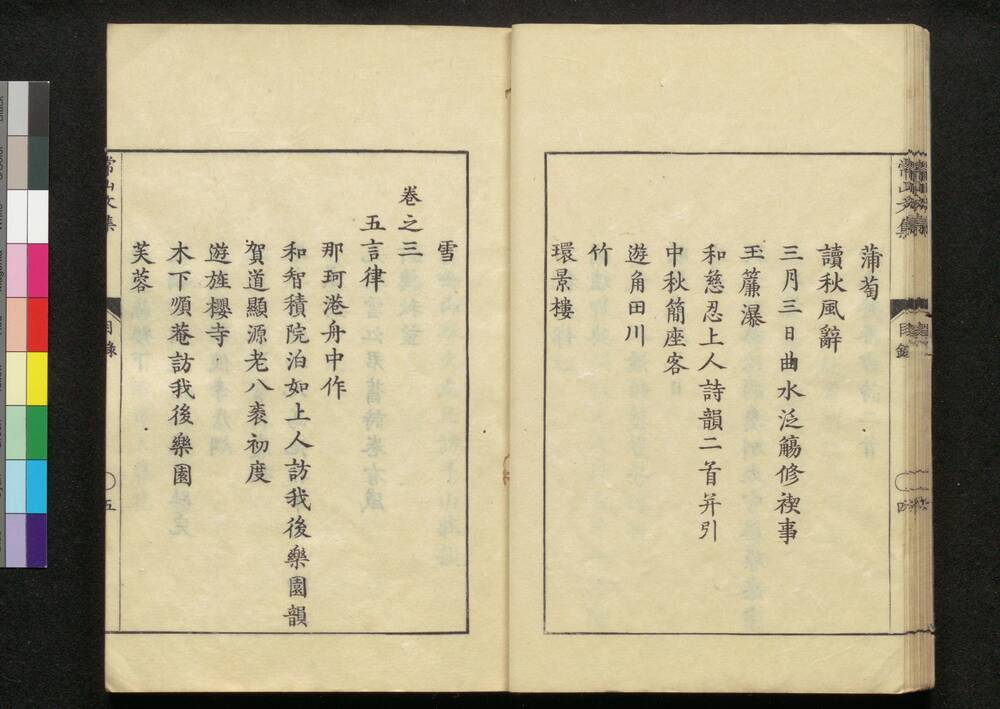 蒲萄
讀秋風辭
三月三日曲水泛觴修禊事
玉簾瀑
和慈忍上人詩韻二首并引
中秋簡座客
遊角田川
竹
環景樓
雪
卷之三
五言律
那珂港舟中作
和智積院泊如上人訪我後樂園韻
賀道顯源老八袠初度
遊旌櫻寺
木下順菴訪我後樂園
芙蓉
常山文集
目錄
五